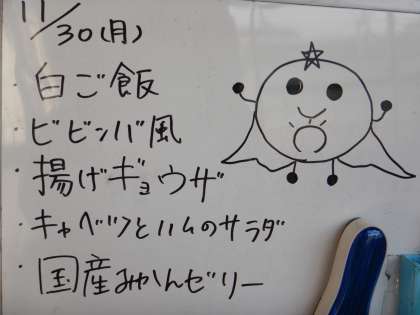 11/30(月)
・白ご飯
・ビビンバ風
・揚げギョウザ
・キャベツとハムのサラダ
・国産みかんゼリー